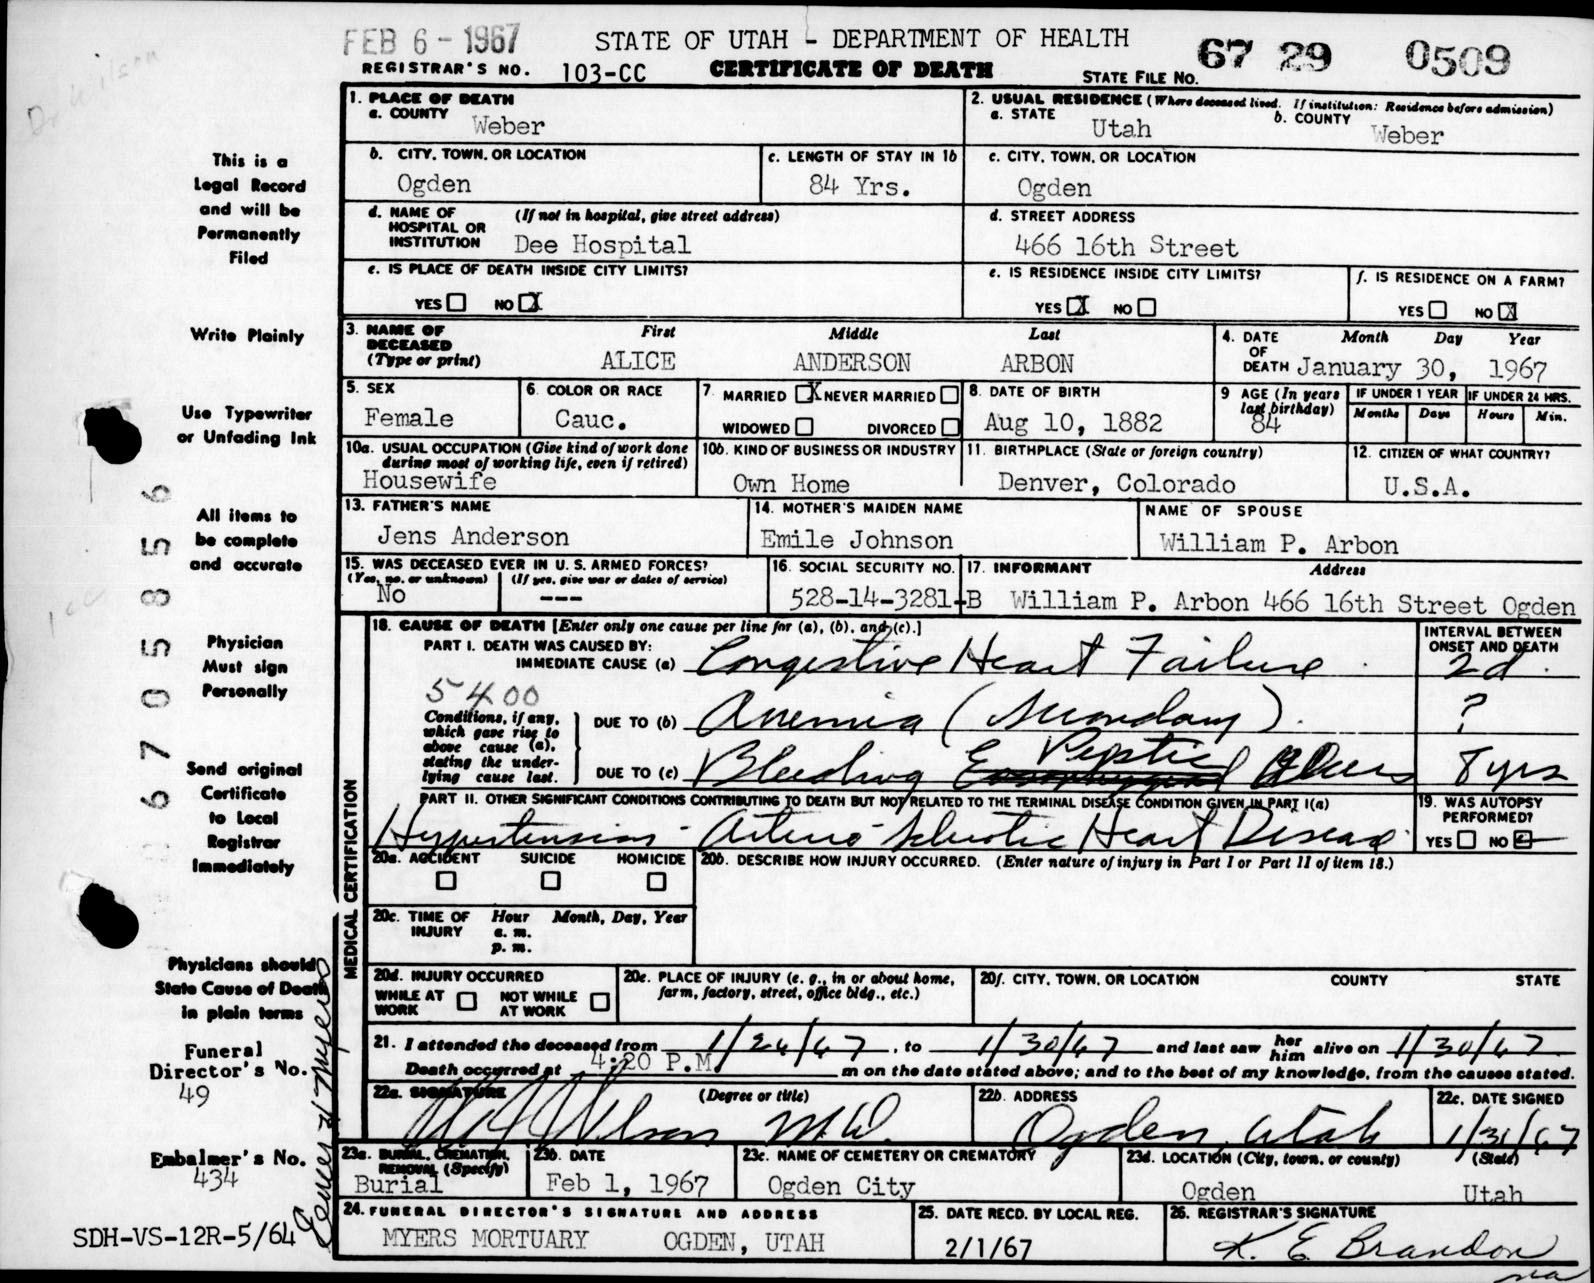 FEB 6 - 1967
STATE OF UTAH - DEPARTMENT OF HEALTH
67 29 0509
REGISTRAR'S NO. 103-CC
CERTIFICATE OF DEATH
STATE FILE NO.
1. PLACE OF DEATH
a. COUNTY
Weber
2. USUAL RESIDENCE (Where deceased lived. If institution: Residence before admission)
a. STATE
Utah
b. COUNTY
Weber
b. CITY, TOWN, OR LOCATION
Ogden
c. LENGTH OF STAY IN 1b
84 Yrs.
c. CITY, TOWN, OR LOCATION
Ogden
d. NAME OF HOSPITAL OR INSTITUTION
(If not in hospital, give street address)
Dee Hospital
d. STREET ADDRESS
466 16th Street
e. IS PLACE OF DEATH INSIDE CITY LIMITS?
YES NO X
e. IS RESIDENCE INSIDE CITY LIMITS?
YES X NO
f. IS RESIDENCE ON A FARM?
YES NO X
3. NAME OF DECEASED
(Type or print)
First Middle Last
ALICE ANDERSON ARBON
4. DATE OF DEATH
Month Day Year
January 30, 1967
5. SEX
Female
6. COLOR OR RACE
Cauc.
7 MARRIED X NEVER MARRIED
WIDOWED DIVORCED
8. DATE OF BIRTH
Aug 10, 1882
9 AGE (In years last birthday)
84
IF UNDER 1 YEAR
Months Days
IF UNDER 24 HRS.
Hours Min.
10a. USUAL OCCUPATION (Give kind of work done during most of working life, even if retired)
Housewife
10b. KIND OF BUSINESS OR INDUSTRY
Own Home
11. BIRTHPLACE (State or foreign country)
Denver, Colorado
12. CITIZEN OF WHAT COUNTRY?
U.S.A.
13. FATHER'S NAME
Jens Anderson
14. MOTHER'S MAIDEN NAME
Emile Johnson
NAME OF SPOUSE
William P. Arbon
15. WAS DECEASED EVER IN U. S. ARMED FORCES?
(Yes, no, or unknown) (If yes, give war or dates of service)
No ---
16. SOCIAL SECURITY NO.
528-14-3281-B
17. INFORMANT Address
William P. Arbon 466 16th Street Ogden
MEDICAL CERTIFICATION
18. CAUSE OF DEATH [Enter only one cause per line for (a), (b), and (c).]
INTERVAL BETWEEN ONSET AND DEATH
PART I. DEATH WAS CAUSED BY:
IMMEDIATE CAUSE (a) Congestive Heart Failure 2d
5400
Conditions, if any, which gave rise to above cause (a), stating the underlying cause last.
DUE TO (b) Anemia (Secondary). ?
DUE TO (c) Bleeding Peptic Ulcers 8 yrs
PART II. OTHER SIGNIFICANT CONDITIONS CONTRIBUTING TO DEATH BUT NOT RELATED TO THE TERMINAL DISEASE CONDITION GIVEN IN PART I(a)
Hypertension - Arterio-Sclerotic Heart Disease
19. WAS AUTOPSY PERFORMED?
YES NO
20a. ACCIDENT SUICIDE HOMICIDE
20b. DESCRIBE HOW INJURY OCCURRED. (Enter nature of injury in Part I or Part II of item 18.)
20c. TIME OF INJURY
Hour Month, Day, Year
a. m.
p. m.
20d. INJURY OCCURRED
WHILE AT WORK NOT WHILE AT WORK
20e. PLACE OF INJURY (e. g., in or about home, farm, factory, street, office bldg., etc.)
20f. CITY, TOWN, OR LOCATION COUNTY STATE
21. I attended the deceased from 1/26/67, to 1/30/67 and last saw her him alive on 1/30/67.
Death occurred at 4:20 P.M. m on the date stated above; and to the best of my knowledge, from the causes stated.
22a. SIGNATURE (Degree or title)
Wilson M.D.
22b. ADDRESS
Ogden, Utah
22c. DATE SIGNED
1/31/67
23a. BURIAL, CREMATION, REMOVAL (Specify)
Burial
23b. DATE
Feb 1, 1967
23c. NAME OF CEMETERY OR CREMATORY
Ogden City
23d. LOCATION (City, town, or county) (State)
Ogden Utah
24. FUNERAL DIRECTOR'S SIGNATURE AND ADDRESS
MYERS MORTUARY OGDEN, UTAH
25. DATE RECD. BY LOCAL REG.
2/1/67
26. REGISTRAR'S SIGNATURE
K. E. Brandon
Dr Wilson
This is a
Legal Record
and will be
Permanently
Filed
Write Plainly
Use Typewriter
or Unfading Ink
All items to
be complete
and accurate
Physician
Must sign
Personally
Send original
Certificate
to Local
Registrar
Immediately
Physicians should
State Cause of Death
in plain terms
Funeral
Director's No.
49
Embalmer's No.
434
SDH-VS-12R-5/64
67 05 8556